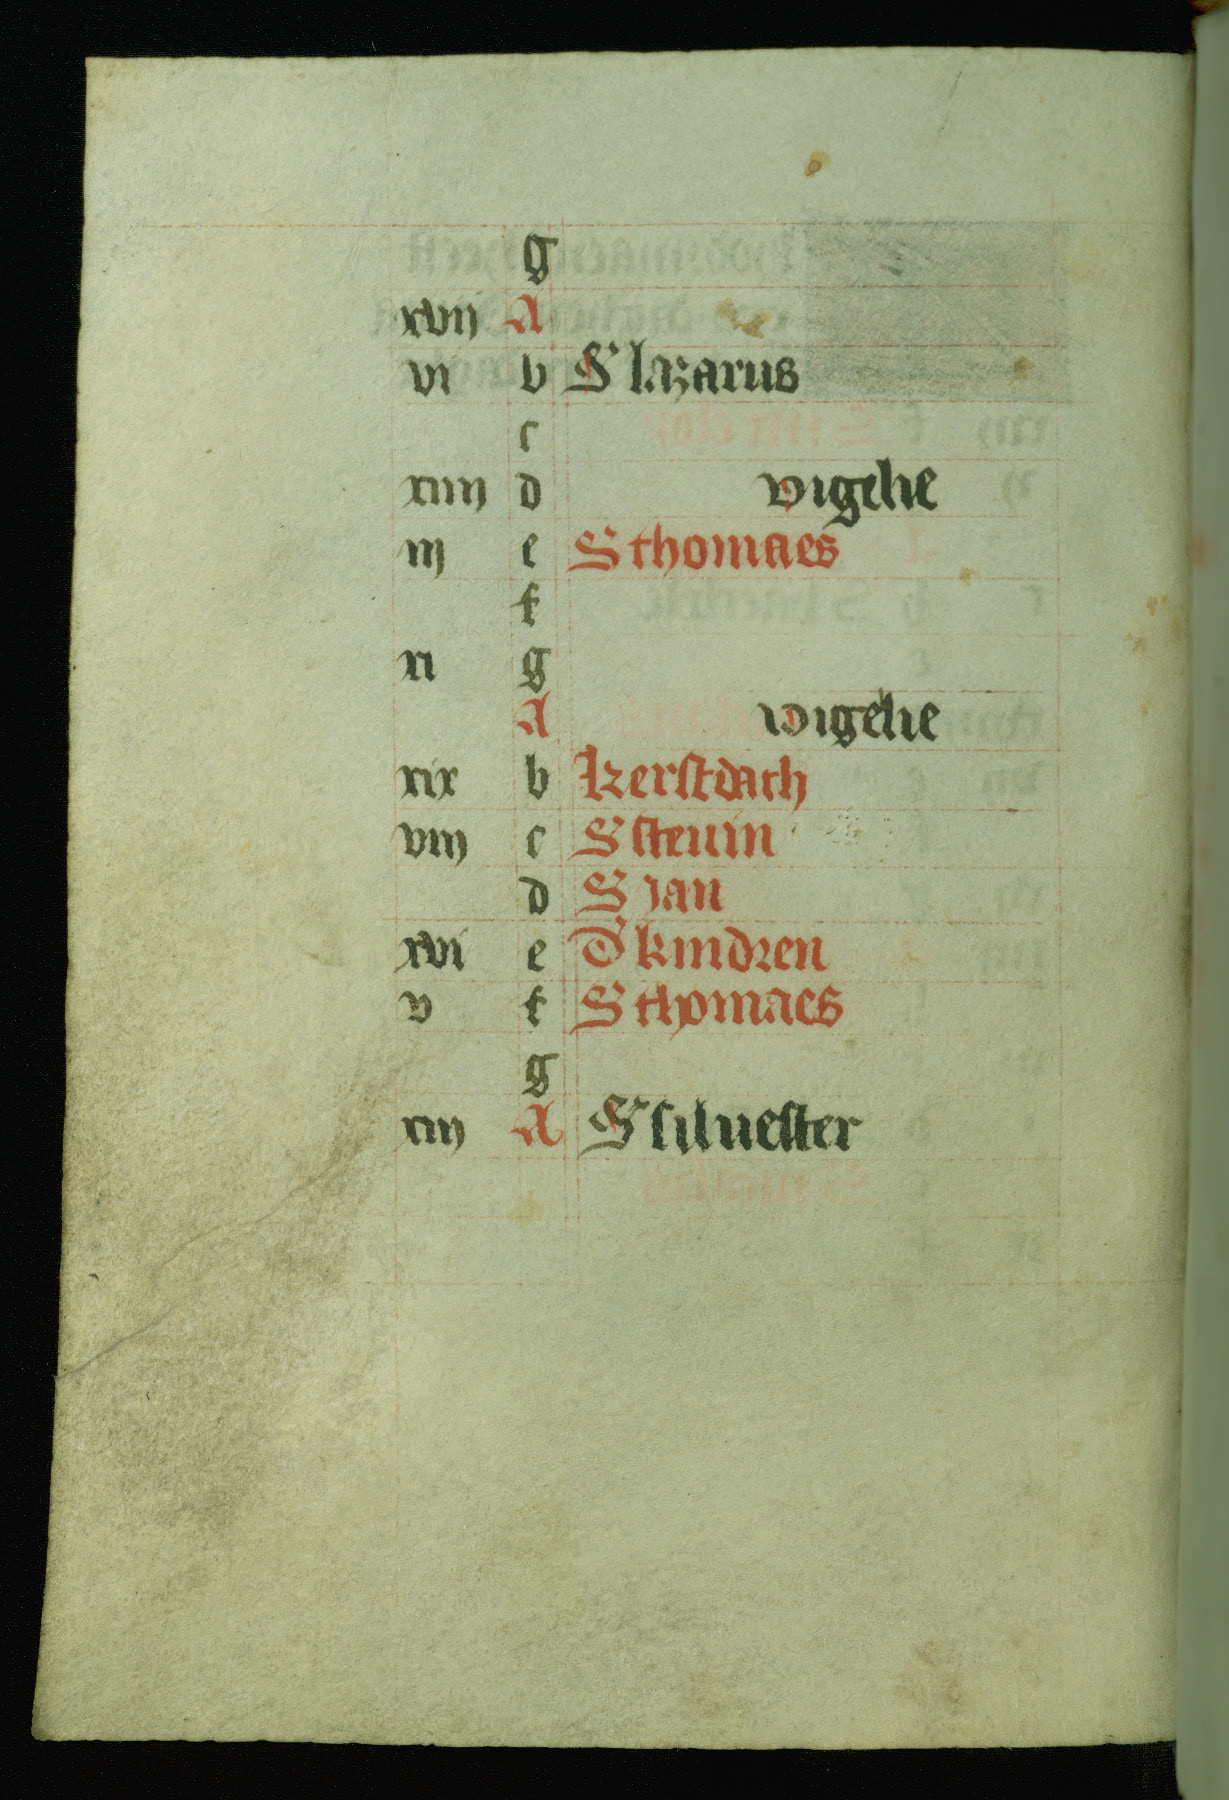 g
xvij A
vi b S lazarus
c
xiiij d vigelie
iij e S thomaes
f
xi g
A vigelie
xix b kerstdach
viij c S steuin
d S jan
xvi e D kindren
v f S thomaes
g
xiij A S siluester